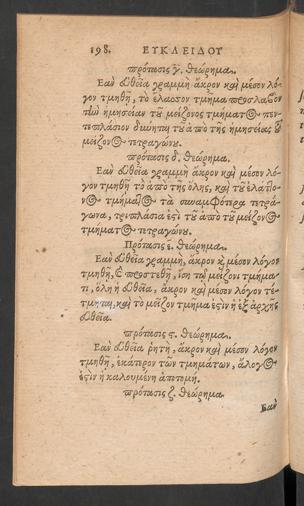 198. ΕΥΚΛΕΙΔΟΥ
πρότασις γ. θεώρημα.
Εαν ευθεῖα γραμμὴ ἄκρον καὶ μέσον λό-
γον τμηθῇ, τὸ ἔλασσον τμῆμα προσλαβὸν
τὴν ἡμίσειαν τοῦ μείζονος τμήματος πεν-
ταπλάσιον δύναται τοῦ ἀπὸ τῆς ἡμισείας τοῦ
μείζονος τετραγώνου.
πρότασις δ. θεώρημα.
Εαν ευθεῖα γραμμὴ ἄκρον καὶ μέσον λό-
γον τμηθῇ τὸ ἀπὸ τῆς ὅλης, καὶ τοῦ ἐλάττο-
νος τμήματος τὰ συναμφότερα τετρά-
γωνα, τριπλάσιά ἐστι τοῦ ἀπὸ τοῦ μείζονος
τμήματος τετραγώνου.
Πρότασις ε. θεώρημα.
Εαν ευθεῖα γραμμὴ, ἄκρον καὶ μέσον λόγον
τμηθῇ, καὶ προστεθῇ, ἴση τῷ μείζονι τμήμα-
τι, ὅλη ἡ ευθεῖα, ἄκρον καὶ μέσον λόγον τέ-
τμηται, καὶ τὸ μεῖζον τμῆμά ἐστιν ἡ ἐξ ἀρχῆς
ευθεῖα.
πρότασις ϛ. θεώρημα.
Εαν ευθεῖα ῥητὴ, ἄκρον καὶ μέσον λόγον
τμηθῇ, ἑκάτερον τῶν τμημάτων, ἄλογος
ἐστιν ἡ καλουμένη ἀποτομή.
πρότασις ζ. θεώρημα.
Εαν